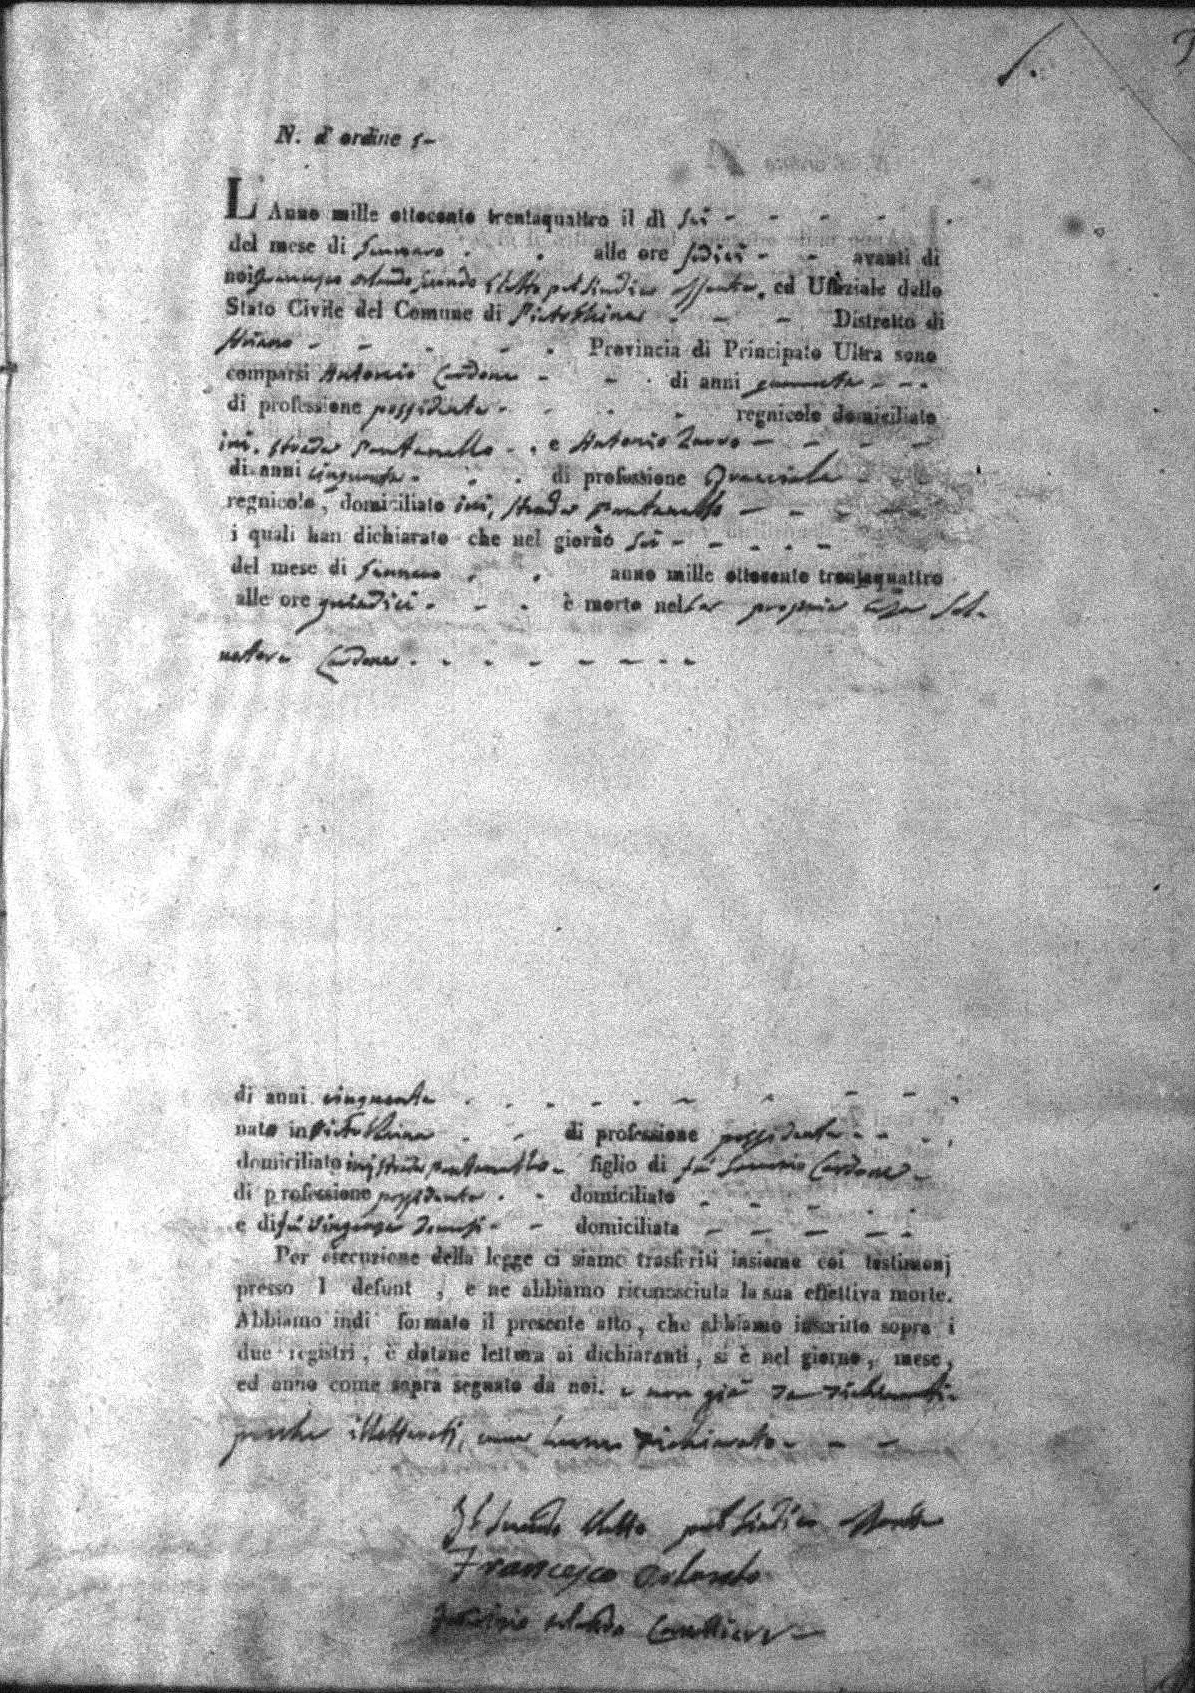 N. d'ordine 5-
L'Anno mille ottocento trentaquattro il dì sei - - - -
del mese di Gennaro . . alle ore sedici - - avanti di
noi Francesco Orlando secondo Eletto pel Sindaco assente, ed Uffiziale dello
Stato Civile del Comune di Pietrastornina . - - Distretto di
- - . - . Provincia di Principato Ultra sono
comparsi Antonio Cardone - - . di anni quaranta - - -
di professione possidente - - . . - regnicolo domiciliato
ivi, strada Pantanello - . e Antonio - - - -
di anni cinquanta - . . . di professione Bracciale - -
regnicolo, domiciliato ivi, strada Pantanello - - - -
i quali han dichiarato che nel giorno sei - - . . -
del mese di Gennaro . . anno mille ottocento trentaquattro
alle ore quindici . - . è morto nella propria casa Sal-
vatore Cardone . . . - - - . .
di anni cinquanta . . . - . - - - - .
nato in . - di professione possidente - - . ,
domiciliato ivi strada Pantanello - figlio di fu Cardone -
di professione possidente . . domiciliato - - - . .
e di fu - - domiciliata - - - - .
Per esecuzione della legge ci siamo trasferiti insieme coi testimonj
presso l defunt , e ne abbiamo riconosciuta la sua effettiva morte.
Abbiamo indi formato il presente atto, che abbiamo inscritto sopra i
due registri, è datane lettura ai dichiaranti, si è nel giorno, mese,
ed anno come sopra segnato da noi. e non già da dichiaranti
perche illetterati, come hanno dichiarato - - -
Il secondo Eletto pel Sindaco assente
Francesco Orlando
Orlando Cancelliere